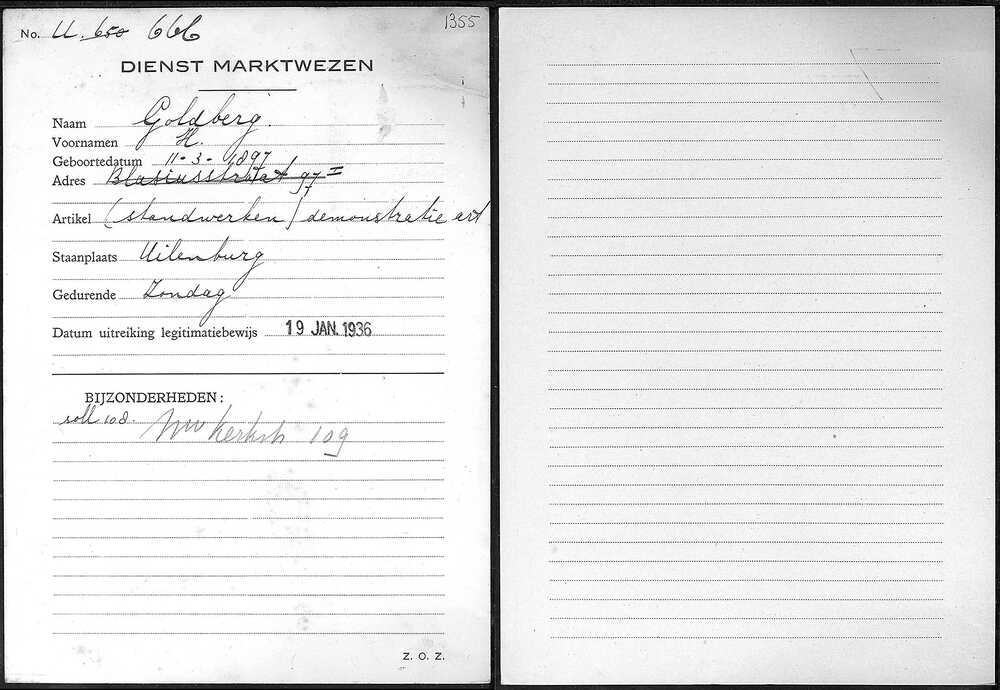 1355
No. U. 650 666
DIENST MARKTWEZEN
Naam Goldberg.
Voornamen H.
Geboortedatum 11-3-1897
Adres Blasiusstraat 97 I
Artikel (standwerken) demonstratie art
Staanplaats Uilenburg
Gedurende Zondag
Datum uitreiking legitimatiebewijs 19 JAN. 1936
BIJZONDERHEDEN:
soll 108.
Nw kerkstr 109
Z. O. Z.